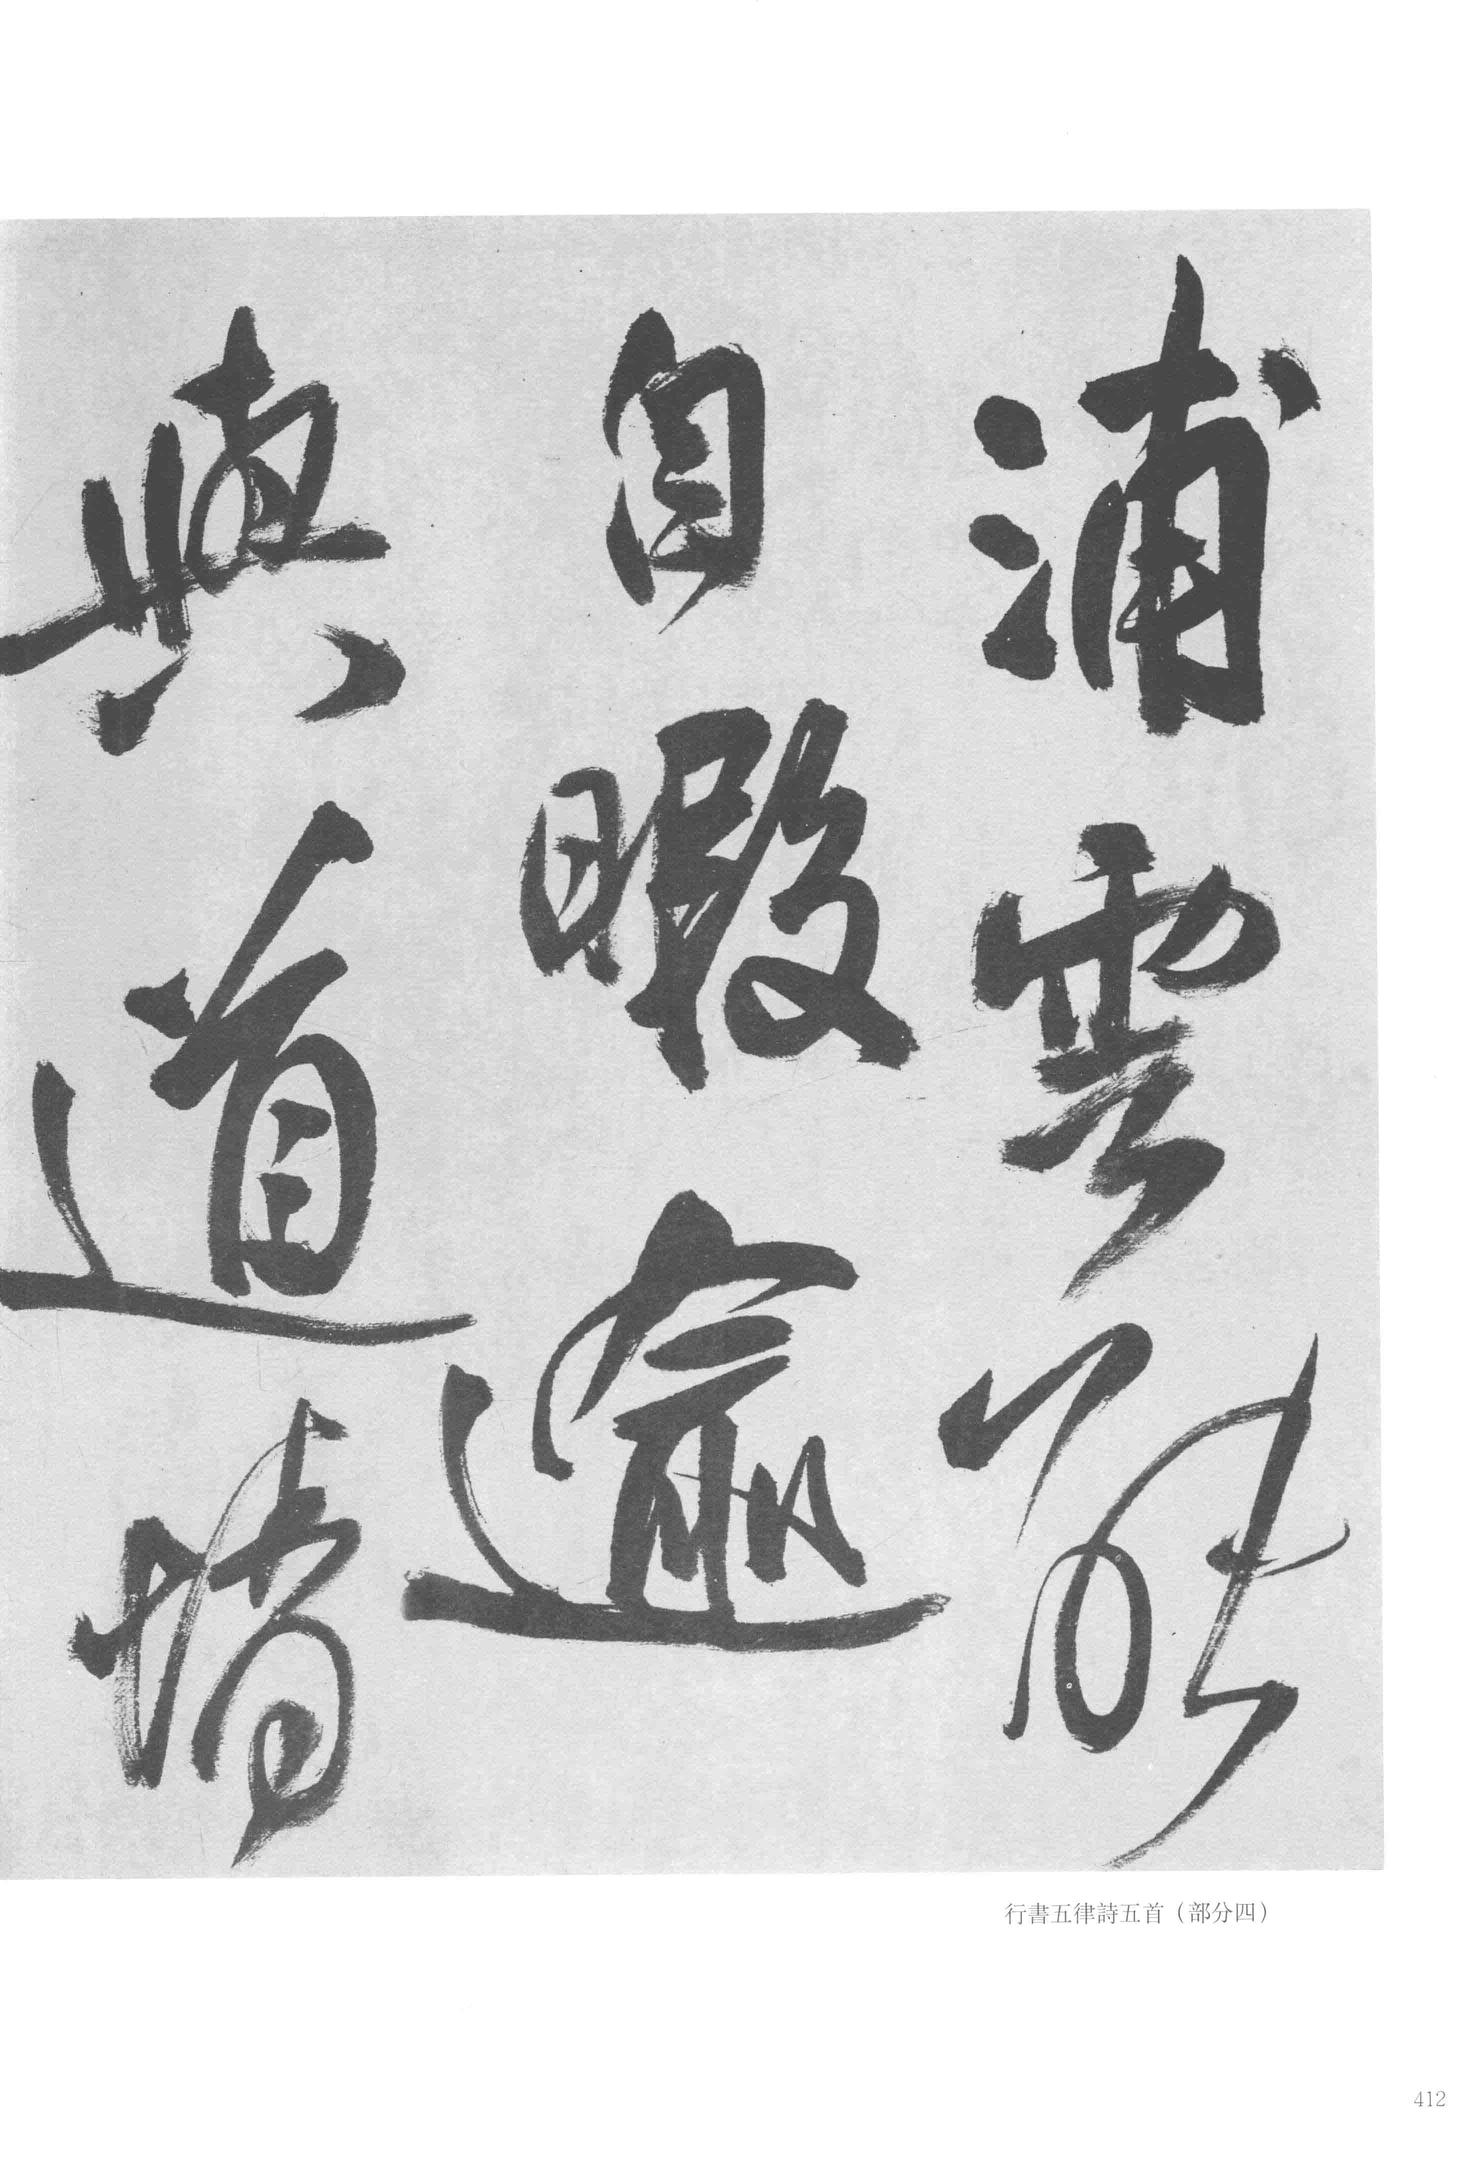 浦雲能
自暇逾
與道情
行書五律詩五首（部分四）
412